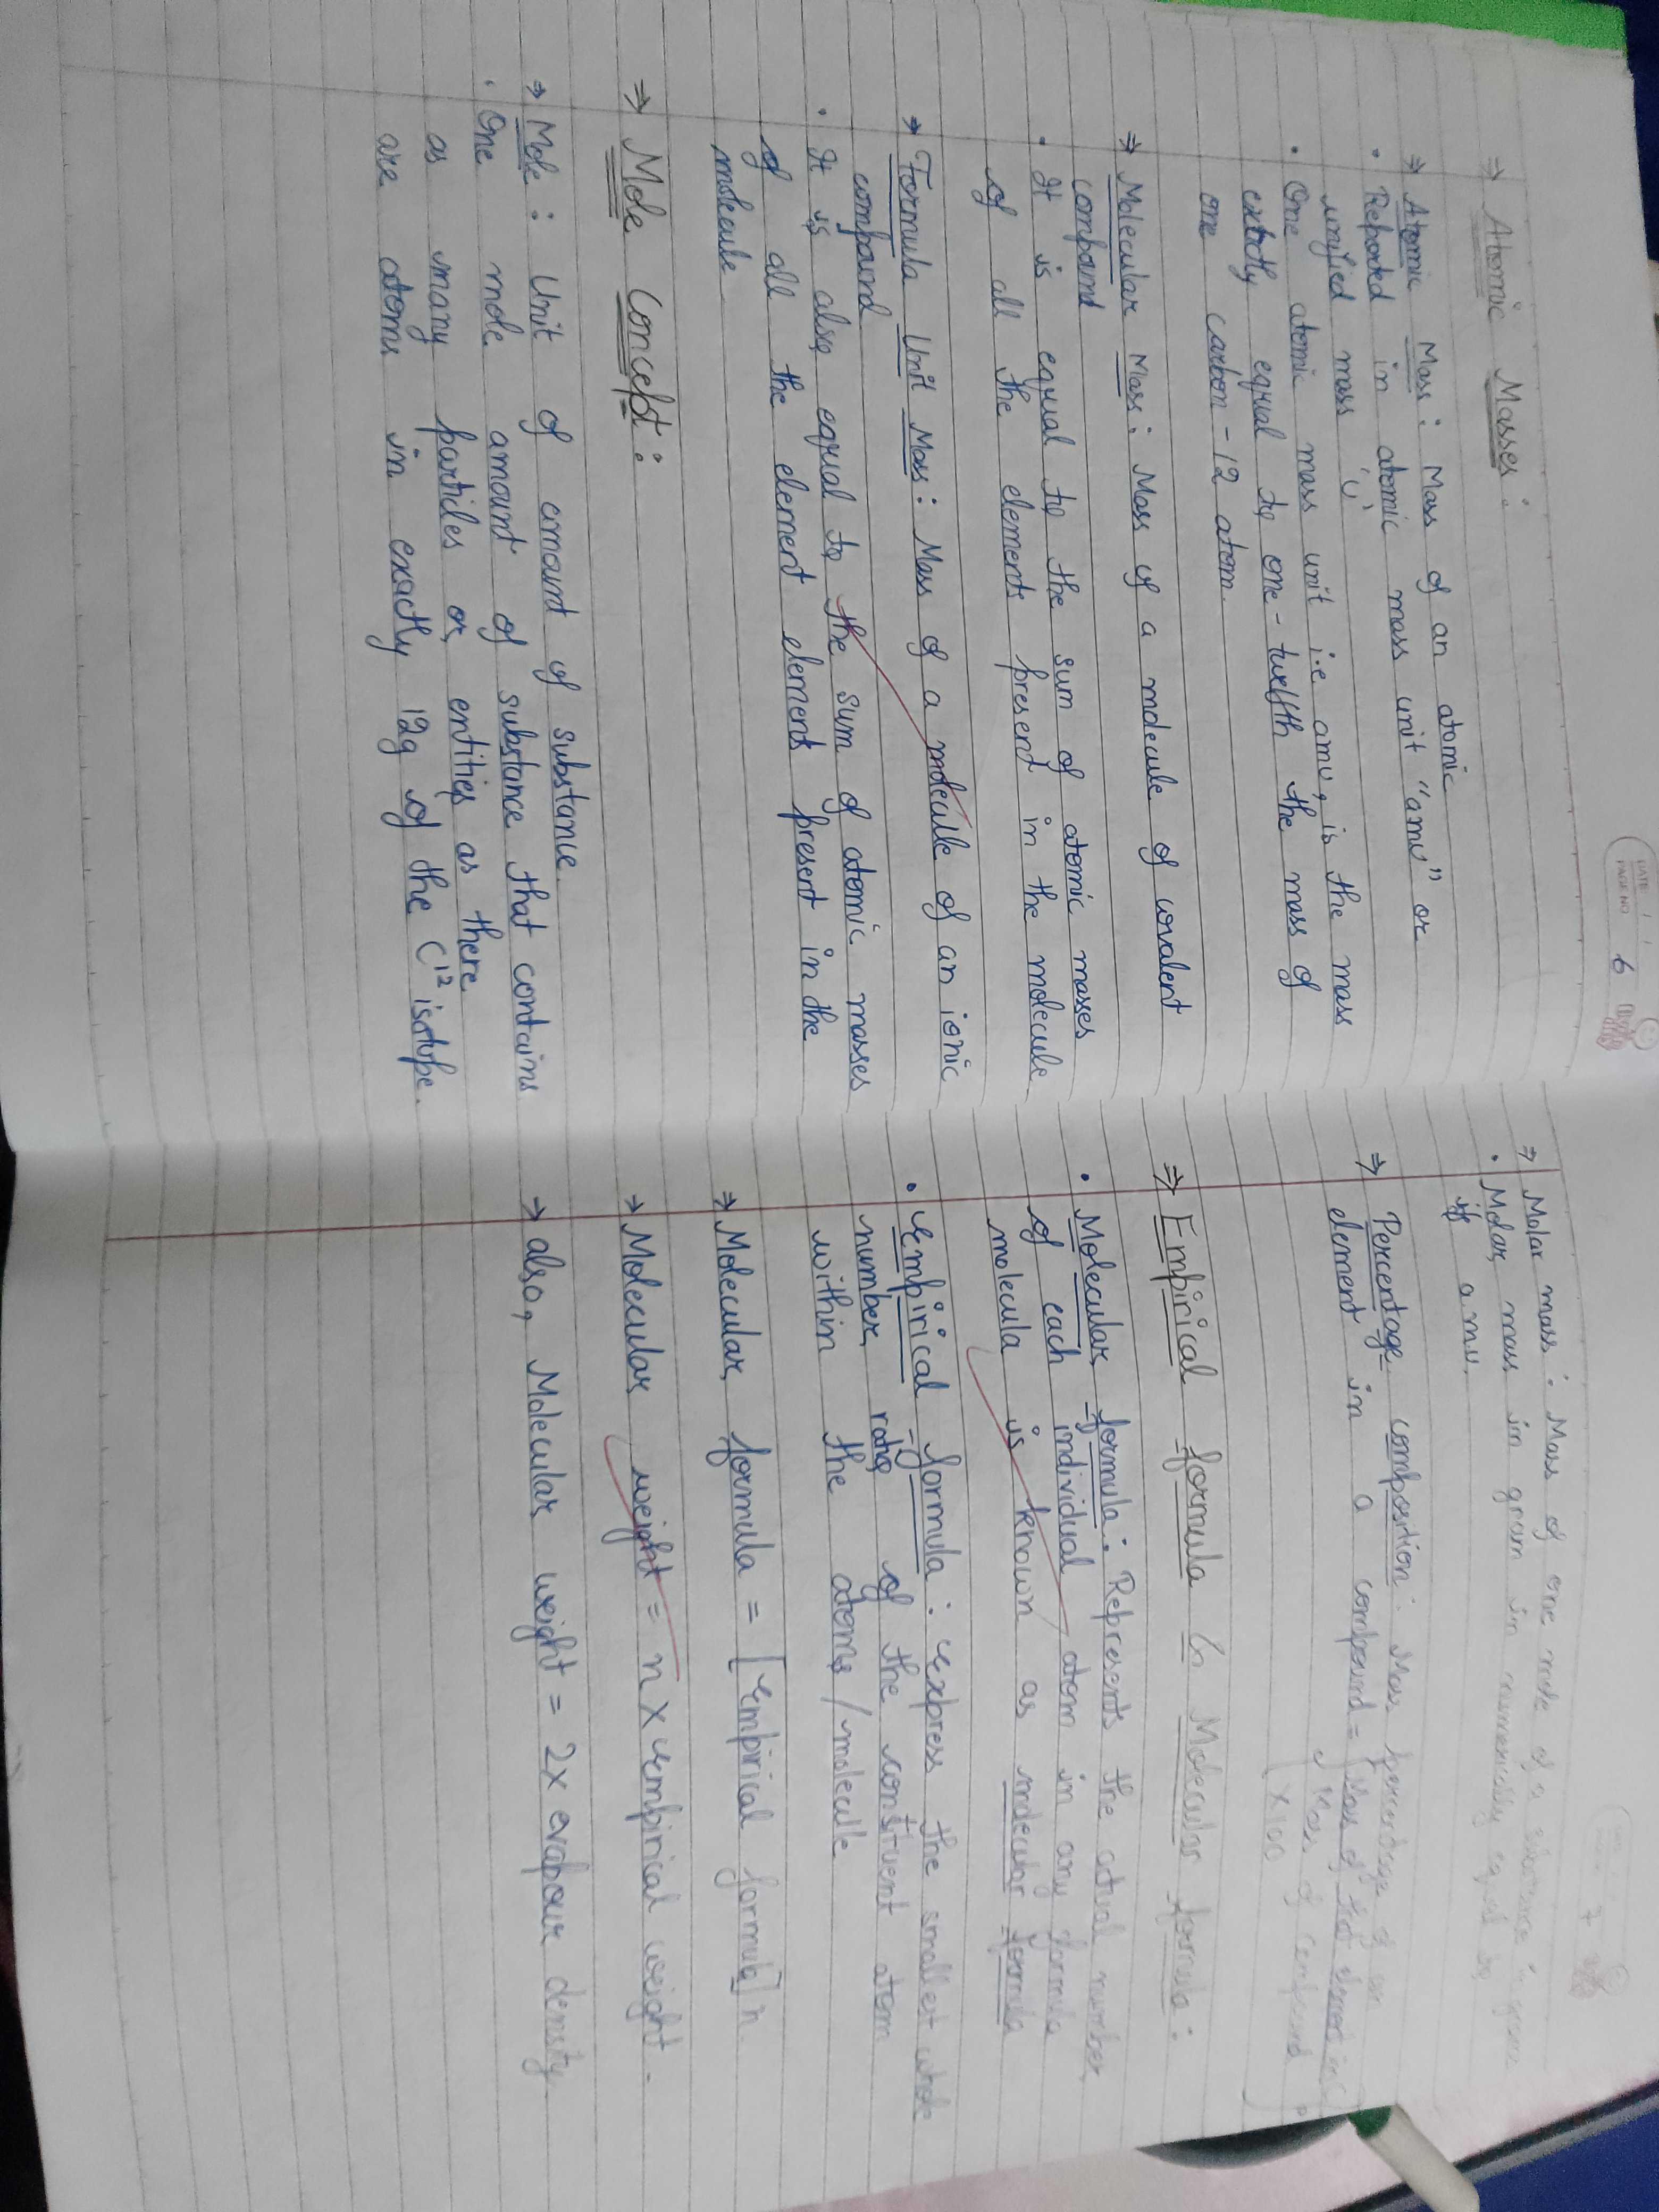 DATE / /
PAGE NO. 6
⇒ Atomic Masses :
⇒ Atomic Mass : Mass of an atomic
• Reported in atomic mass unit "amu" or
unified mass 'u'
• One atomic mass unit i.e amu, is the mass
extctly equal to one-twelfth the mass of
one carbon-12 atom.
⇒ Molecular Mass : Mass of a molecule of covalent
compand
• It is equal to the sum of atomic masses
of all the elements present in the molecule
→ Formula Unit Mass : Mass of a molecule of an ionic
compound
• It is also equal to the sum of atomic masses
of all the element element present in the
molecule
⇒ Mole Concept :
→ Mole : Unit of amount of substance.
• One mole amount of substance that contains
as many particles or entities as there
are atoms in exactly 12g of the C¹² isotope.
7
⇒ Molar mass : Mass of one mole of a substance in
• Molar mass in gram in numerically equal to
if amu.
⇒ Percentage composition : Mass percentage of an
element in a compound = [ Mass of that element in
Mass of compound
] x100
⇒ Empirical formula & Molecular formula :
• Molecular formula : Represents the actual number
of each individual atom in any formula
molecula is known as molecular formula
• Empirical formula : express the smallest whole
number ratio of the constituent atom
within the atoms/molecule
⇒ Molecular formula = [Empirical formula]n.
⇒ Molecular weight = n x empirical weight.
⇒ also, Molecular weight = 2x evapour density